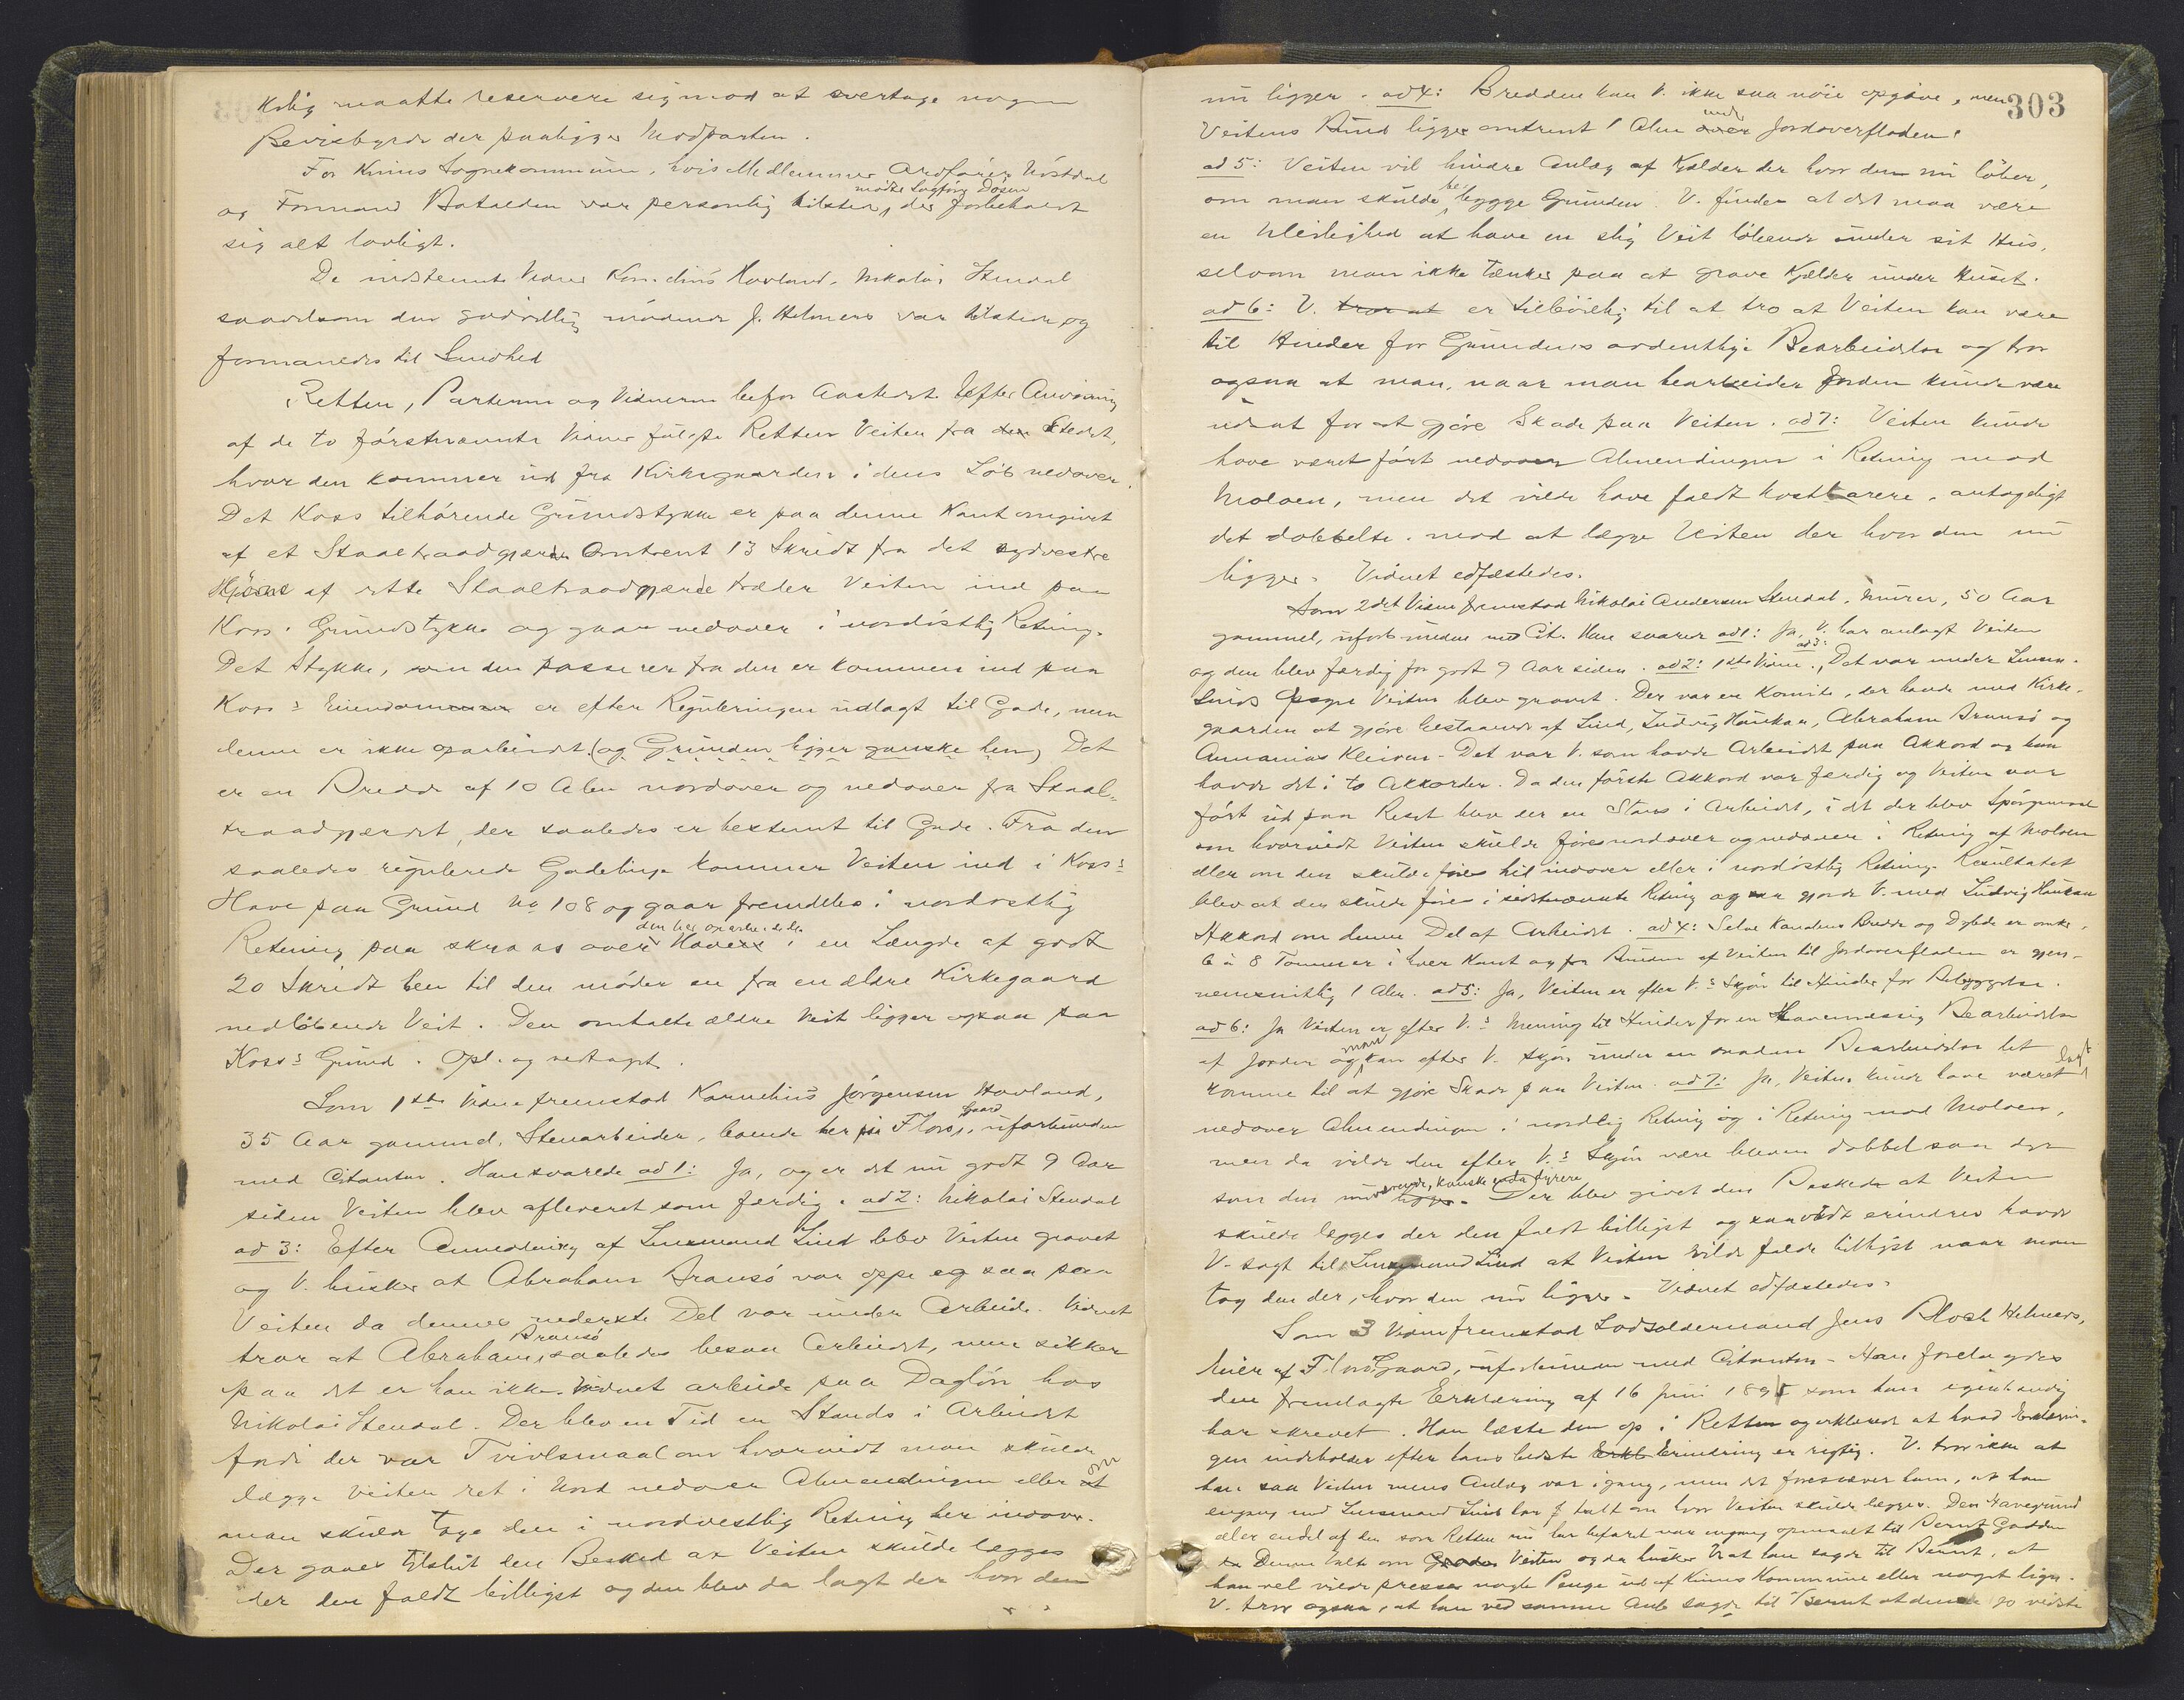 kelig maatte reservere sig mod at overtage nogen
Bevisbyrde der paaligger Modparten.
For Kinns Sognekommune, hvis Medlemmer Ordfører Nøstdal
mødte Sagfører Døsen
og Formand Batalden var personlig tilstede, der forbeholdt
sig alt lovligt.
De indstevnte Vidner Kornelius Hovland, Nikolai Stendal
saavelsom den godvillig mødende J. Helmers var tilstede og
formanedes til Sandhed
Retten, Parterne og Vidnerne befor Aastedet. Efter Anvisning
af de to førstnævnte Vidner fulgte Retten Veiten fra den Stedet,
hvor den kommer ud fra Kirkegaarden i dens Løb nedover.
Det Koss tilhørende Grundstykke er paa denne Kant omgivet
af et Staaltraadgjærde Omtrent 13 Skridt fra det sydvestre
Hjørne af dette Staaltraadgjærde træder Veiten ind paa
Koss's Grundstykke og gaar nedover i nordøstlig Retning.
Det Stykke, som den passerer fra den er kommen ind paa
Koss's Eiendommen er efter Reguleringen udlagt til Gade, men
denne er ikke oparbeidet (og Grunden ligger ganske hen) Det
er en Bredde af 10 Alen nordover og nedover fra Staal-
traadgjærdet, der saaledes er bestemt til Gade. Fra den
saaledes regulerede Gadelinje kommer Veiten ind i Koss's
Have paa Grund No 108 og gaar fremdeles i nordostlig
den her oparbeidede
Retning paa skraas over Haven i en Længde af godt
20 Skridt hen til den møder en fra en ældre Kirkegaard
nedløbende Veit. Den omtalte ældre Veit ligger ogsaa paa
Koss's Grund. Opl. og vedtaget.
Som 1ste Vidne fremstod Kornelius Jørgensen Hovland,
Gaard
35 Aar gammel, Stenarbeider, boende her paa Florø, uforbunden
med Citanten. Han svarede ad 1: Ja, og er det nu godt 9 Aar
siden Veiten blev afleveret som færdig. ad 2: Nikolai Stendal
ad 3: Efter Anmodning af Lensmand Lind blev Veiten gravet
og V. husker at Abraham Bransø var oppe og saa paa
Veiten da dennes nederste Del var under Arbeide. Vidnet
Bransø
tror at Abraham, saaledes besaa Arbeidet, men sikker
paa det er han ikke. Vidnet arbeide paa Dagløn hos
Nikolai Stendal. Der blev en Tid en Stands i Arbeidet
fordi der var Tvivlsmaal om hvorvidt man skulde
lægge Veiten ret i Nord nedover Almendingen eller at
om
man skulde tage den i nordvestlig Retning her indover.
Der gaves tilslut den Besked at Veiten skulde lægges
der den faldt billigst og den blev da lagt der hvor den
303
nu ligger. ad 4: Bredden kan V. ikke saa nøie opgive, men
und
Veitens Bund ligger omtrent 1 Alen over Jordoverfladen.
ad 5: Veiten vil hindre Anlæg af Kjelder der hvor den nu løber,
be
om man skulde bygge Grunden. V. finder at det maa være
en Uleilighed at have en slig Veit løbende under sit Hus,
selvom man ikke tænker paa at grave Kjelder under Huset.
ad 6: V. tror at er tilbøielig til at tro at Veiten kan være
til Hinder for Grundens ordentlige Bearbeidelse og tror
ogsaa at man, naar man bearbeider Jorden kunde være
udsat for at gjøre Skade paa Veiten. ad 7: Veiten kunde
have været ført nedover Almendingen i Retning mod
Moloen, men det vilde have faldt kostbarere, antageligt
det dobbelte, mod at lægge Veiten der hvor den nu
ligger. Vidnet edfæstedes.
Som 2det Vidne fremstod Nikolai Andersen Stendal, Murer, 50 Aar
gammel, uforbunden med Cit. Han svarer ad 1: Ja, V. har anlagt Veiten
ad 3:
og den blev færdig for godt 9 Aar siden. ad 2: 1ste Vidne. Det var under Lensm.
Linds Veiten blev gravet. Der var en Komite, der havde med Kirke-
gaarden at gjøre bestaaende af Lind, Ludvig Haukaa, Abraham Bransø og
Annanias Kleivan. Det var V. som havde Arbeidet paa Akkord og han
havde det i to Akkorder. Da den første Akkord var færdig og Veiten var
ført ud paa blev der en Stans i Arbeidet, idet der blev Spørgsmaal
om hvorvidt Veiten skulde føres nordover og nedover i Retning af Moloen
eller om den skulde føres hid indover eller i nordøstlig Retning. Resultatet
blev at den skulde føres i sidstnævnte Retning og saa gjorde V. med Ludvig Haukaa
Akkord om denne Del af Arbeidet. ad 4: Selve Kanalens Bredde og Dybde er omkr.
6 à 8 Tommer i hver Kant og fra Bunden af Veiten til Jordoverfladen er gjen-
nemsnitlig 1 Alen. ad 5: Ja, Veiten er efter V.'s Skjøn til Hinder for Bebyggelse.
ad 6: Ja Veiten er efter V.'s Mening til Hinder for en Havemæssig Bearbeidelse
man
af Jorden og kan efter V. Skjøn under en saadan Bearbeidelse let
lagt
komme til at gjøre Skade paa Veiten. ad 7: Ja, Veiten kunde have været
nedover Almendingen i nordlig Retning og i Retning mod Moloen,
men da vilde den efter V.'s Skjøn være bleven dobbel saa dyr
kanske enda dyrere
som den nu ligger. Der blev givet den Besked at Veiten
skulde lægges der den faldt billigst og saavidt erindres havde
V. sagt til Lensmand Lind at Veiten vilde falde billigst naar man
tog den der, hvor den nu ligger. Vidnet edfæstedes.
Som 3 Vidne fremstod Lodsoldermand Jens Bloch Helmers,
Eier af Florø Gaard, uforbunden med Citanten. Han forelagdes
den fremlagte Erklæring af 16 Juni 189 som han egenhændig
har skrevet. Han læste den op i Retten og erklærede at hvad Erklærin-
gen indeholder efter hans bedste Erkl Erindring er rigtig. V. tror ikke at
han saa Veiten mens Anlæg var igang, men det foresvæver ham, at han
engang med Lensmand Lind har talt om hvor Veiten skulde lægges. Den Havegrund
eller endel af den som Retten nu har befaret var engang opmaalt til Bernt Gadden
Denne talte om Veiten og da husker V. at han sagde til Bernt, at
han vel vilde presse nogle Penge ud af Kinns Kommune eller noget lign.
V. tror ogsaa, at han ved samme Anl. sagde til Bernt at denne jo vidste